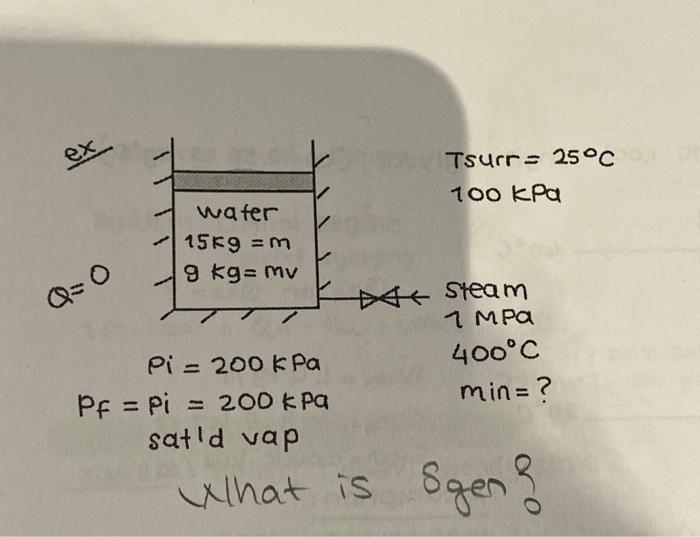 ex
Tsurr = 25°C
100 kPa
water
15kg = m
9 kg = mv
Q=0
steam
1 MPa
400°C
min = ?
Pi = 200 kPa
Pf = Pi = 200 kPa
sat'd vap
What is Sgen?